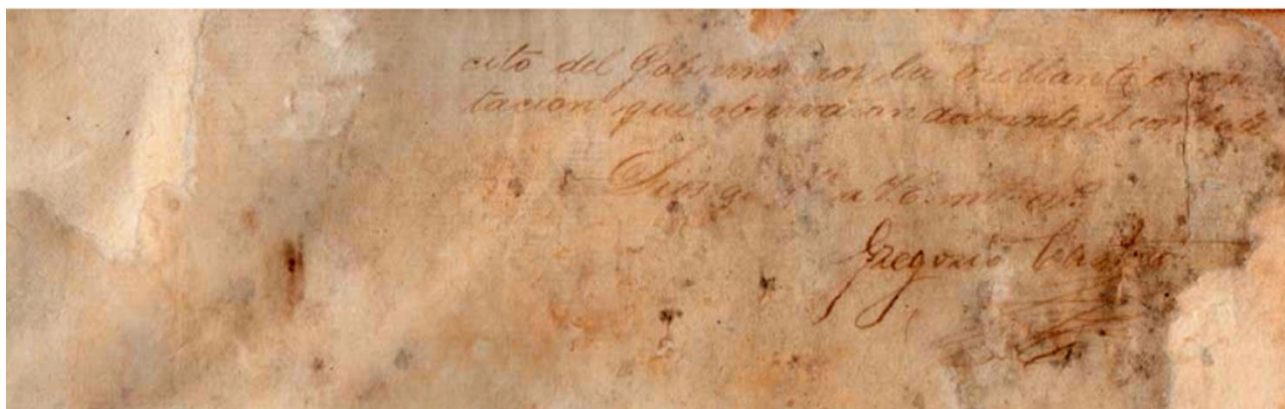 cito del Gobierno por la brillante compor
tacion que observaron durante el combate
Dios gue a V. E. ms. as.
Gregorio Castro